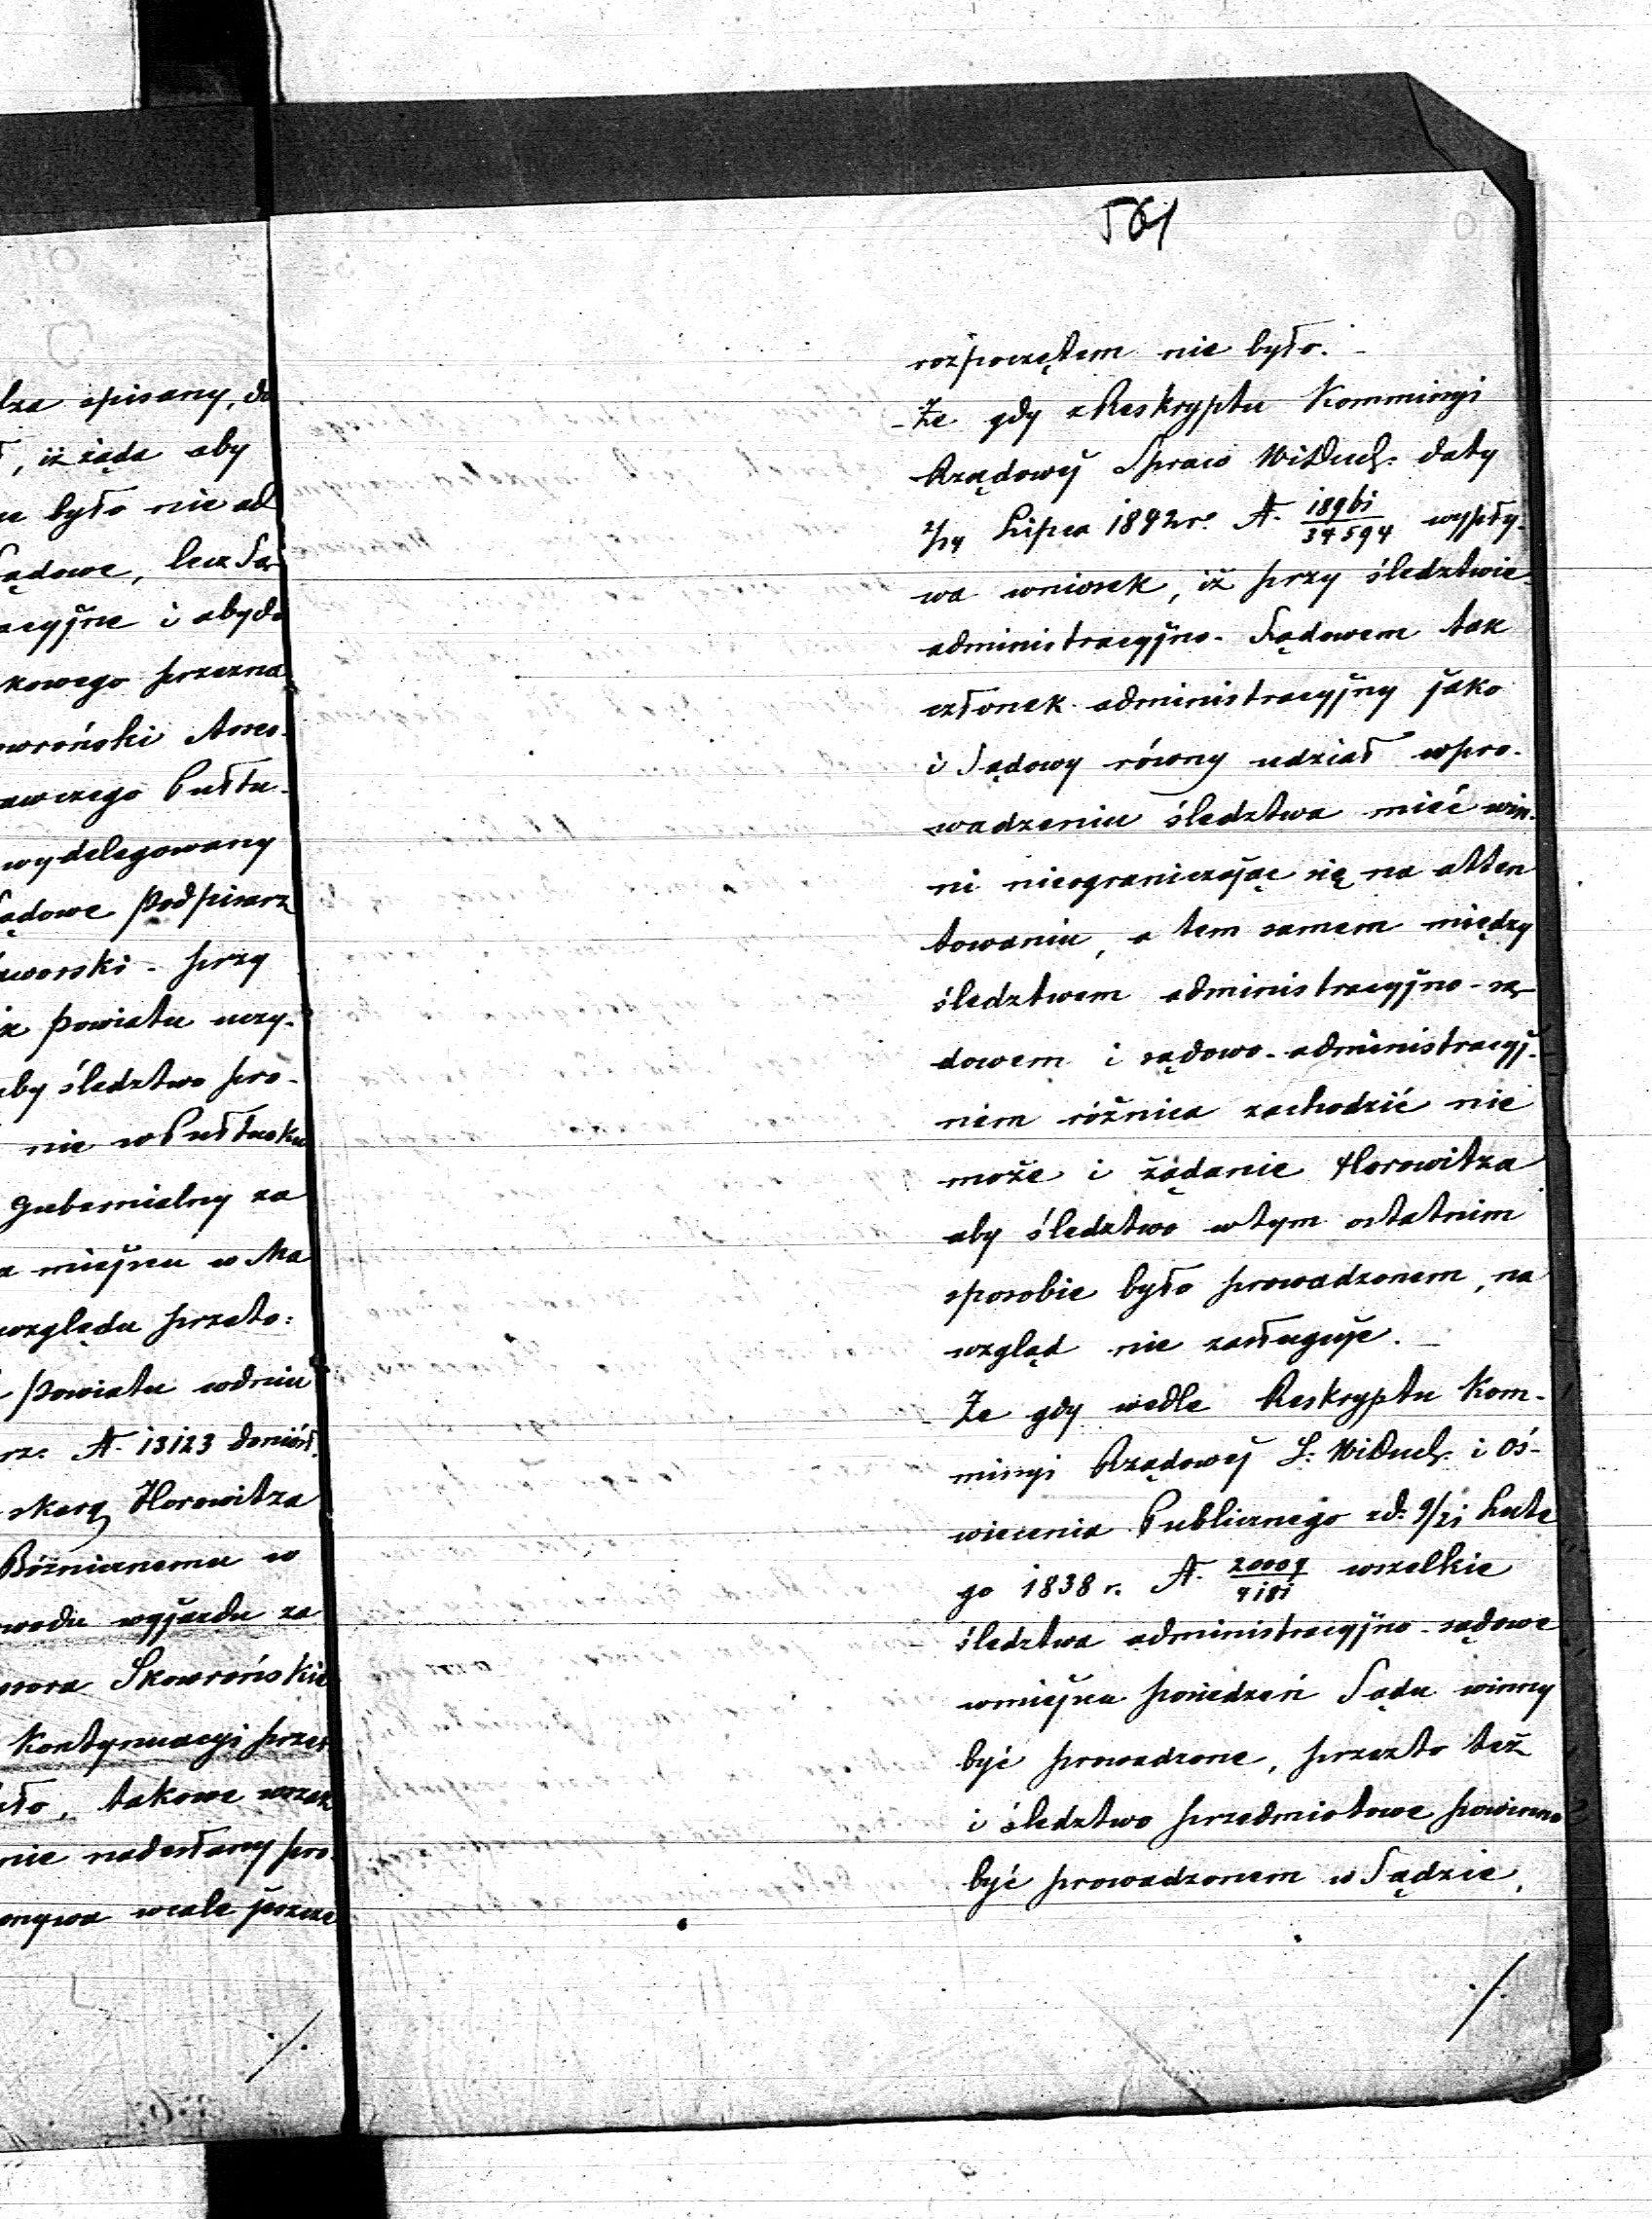 dza spisany, do
, iż żąda aby
było nie ad
Sądowe, lecz Są
acyjne i aby do
kowego przezna
owroński Asses-
awczego Pułtu-
wydelegowany
Sądowe Podpisarz
aworski - przy
ik Powiatu uczy-
aby śledztwo pro-
nie w Pułtusku
Gubernialny za
a miejscu w Ma
względu przeto:
Powiatu w dniu
rz. N. 13123 doniósł
skarg Horowitza
Bóżnicznemu w
wodu wyjazdu za
ssora Skowrońskie
kontynuacyi przer
ło, takowe wszak
nie nadesłany pro-
onywa wcale jeszcze
./.
561
rozpoczętem nie było. -
- Że gdy z Reskryptu Kommissyi
Rządowej Spraw W i Duch. daty
2/14 Lipca 1842 r. N. 18961/34594 wypły-
wa wniosek, iż przy śledztwie
administracyjno-Sądowem tak
członek administracyjny jako
i Sądowy równy udział w pro-
wadzeniu śledztwa mieć win-
ni nieograniczając się na atten
towaniu, a tem samem między
śledztwem administracyjno-są-
dowem i sądowo-administracyj-
nem różnica zachodzić nie
może i żądanie Horowitza
aby śledztwo w tym ostatnim
sposobie było prowadzonem, na
wzgląd nie zasługuje. -
Że gdy wedle Reskryptu Kom-
missyi Rządowej S. W i Duch. i Oś-
wiecenia Publicznego z d. 9/21 Lute
go 1838 r. N. wszelkie
śledztwa administracyjno-sądowe
w miejscu posiedzeń Sądu winny
być prowadzone, przezto też
i śledztwo przedmiotowe powinno
być prowadzonem w Sądzie,
./.